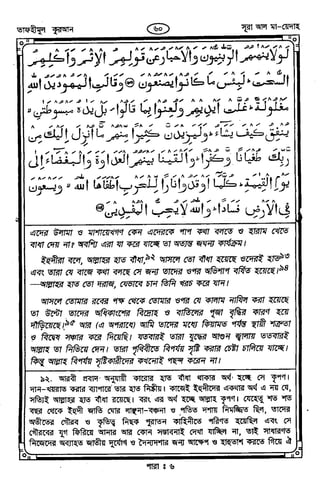 তাফহীমুল কুরআন
৬০
সূরা আল মা-য়েদাহ
لَوْلَا يَنْهٰىهُمُ الرَّبّٰنِيُّوْنَ وَالْاَحْبَارُ عَنْ قَوْلِهِمُ الْاِثْمَ وَاَكْلِهِمُ
السُّحْتَ ؕ لَبِئْسَ مَا كَانُوْا يَصْنَعُوْنَ ۝ وَقَالَتِ الْيَهُوْدُ يَدُ اللّٰهِ
مَغْلُوْلَةٌ ؕ غُلَّتْ اَيْدِيْهِمْ وَلُعِنُوْا بِمَا قَالُوْا ۘ بَلْ يَدٰهُ مَبْسُوْطَتٰنِ ۙ
يُنْفِقُ كَيْفَ يَشَآءُ ؕ وَلَيَزِيْدَنَّ كَثِيْرًا مِّنْهُمْ مَّآ اُنْزِلَ اِلَيْكَ مِنْ
رَّبِّكَ طُغْيَانًا وَّكُفْرًا ؕ وَاَلْقَيْنَا بَيْنَهُمُ الْعَدَاوَةَ وَالْبَغْضَآءَ اِلٰى
يَوْمِ الْقِيٰمَةِ ؕ كُلَّمَآ اَوْقَدُوْا نَارًا لِّلْحَرْبِ اَطْفَاَهَا اللّٰهُ ۙ وَيَسْعَوْنَ
فِى الْاَرْضِ فَسَادًا ؕ وَاللّٰهُ لَا يُحِبُّ الْمُفْسِدِيْنَ ۝
এদের উলামা ও মাশায়েখগণ কেন এদেরকে পাপ কথা বলতে ও হারাম খেতে
বাধা দেয় না? অবশ্যি এরা যা করে যাচ্ছে তা অত্যন্ত জঘন্য কার্যক্রম।
ইহুদীরা বলে, আল্লাহর হাত বাঁধা,৯২ আসলে তো বাঁধা হয়েছে ওদেরই হাত৯৩
এবং তারা যে বাজে কথা বলছে সে জন্য তাদের ওপর অভিশাপ বর্ষিত হয়েছে।৯৪
—আল্লাহর হাত তো দরাজ, যেভাবে চান তিনি খরচ করে যান।
আসলে তোমার রবের পক্ষ থেকে তোমার ওপর যে কালাম নাযিল করা হয়েছে
তা উল্টো তাদের অধিকাংশের বিদ্রোহ ও বাতিলের পূজা বৃদ্ধির কারণ হয়ে
দাঁড়িয়েছে।৯৫ আর (এ অপরাধে) আমি তাদের মধ্যে কিয়ামত পর্যন্ত স্থায়ী শত্রুতা
ও বিদ্বেষ সঞ্চার করে দিয়েছি। যতবারই তারা যুদ্ধের আগুন জ্বালায় ততবারই
আল্লাহ তা নিভিয়ে দেন। তারা পৃথিবীতে বিপর্যয় সৃষ্টি করার চেষ্টা চালিয়ে যাচ্ছে।
কিন্তু আল্লাহ বিপর্যয় সৃষ্টিকারীদের কখনোই পছন্দ করেন না।
৯২. আরবী প্রবাদ অনুযায়ী কারোর হাত বাঁধা থাকার অর্থ হচ্ছে সে কৃপণ।
দান-খয়রাত করার ব্যাপারে তার হাত নিষ্ক্রিয়। কাজেই ইহুদীদের একথার অর্থ এ নয় যে,
সত্যিই আল্লাহর হাত বাঁধা রয়েছে। বরং এর অর্থ হচ্ছে আল্লাহ কৃপণ। যেহেতু শত শত
বছর থেকে ইহুদী জাতি ঘোর লাঞ্ছনা-বঞ্চনা ও পতিত দশায় নিমজ্জিত ছিল, তাদের
অতীতের গৌরব ও কৃতিত্ব নিছক পুরাতন কাহিনীতে পরিণত হয়েছিল এবং সে
গৌরবের যুগ ফিরিয়ে আনার আর কোন সম্ভাবনাই দেখা যাচ্ছিল না, তাই সাধারণত
নিজেদের অব্যাহত জাতীয় দুর্যোগ ও দৈন্যদশার জন্য আক্ষেপ ও হাহুতাশ করতে গিয়ে ঐ
পারা : ৬